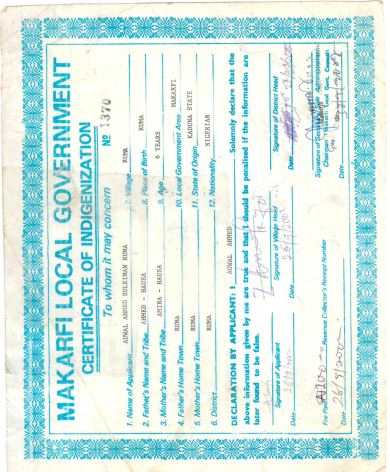 MAKARFI LOCAL GOVERNMENT
CERTIFICATE OF INDIGENIZATION
To whom it may concern
Nº 1370
1. Name of Applicant AUWAL AHMED SULEIMAN RUMA
2. Father's Name and Tribe AHMED - HAUSA
3. Mother's Name and Tribe AMINA - HAUSA
4. Father's Home Town RUMA
5. Mother's Home Town RUMA
6. District RUMA
7. Village RUMA
8. Place of Birth RUMA
9. Age 6 YEARS
10. Local Government Area MAKARFI
11. State of Origin KADUNA STATE
12. Nationality NIGERIAN
DECLARATION BY APPLICANT: I AUWAL AHMED Solemnly declare that the
above information given by me are true and that I should be penalised if the information are
later found to be false.
Signature of Applicant
Date
Signature of Village Head
Date 26/9/2002
Signature of District Head
Date
Signature of Administration
Chairman Makarfi Local Govt. Council
Date
Fee Paid ₦200 Revenue Collector's Receipt Number
Date 26/9/2002